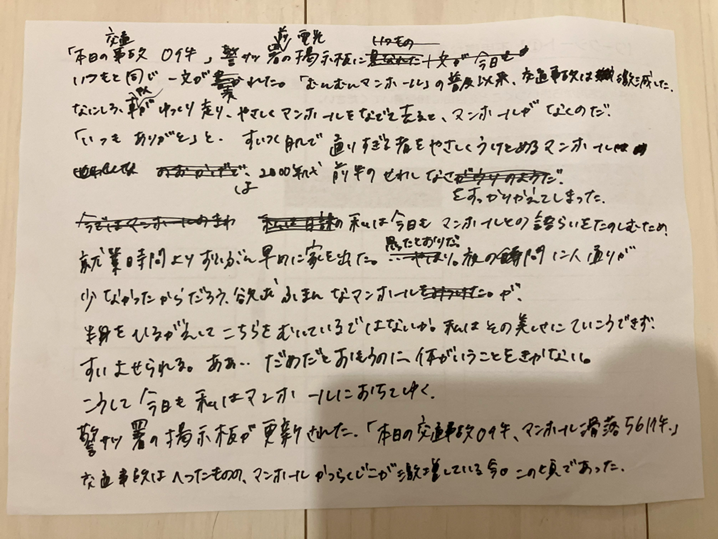 「本日の交通事故 0件」警サツ署前の電光掲示板に十文が今日も
いつもと同じ一文が書かれた。「むんむんマンホール」の普及以来、交通事故は激減した。
なにしろ、車がゆっくり走り、やさしくマンホールをなでて去ると、マンホールがなくのだ。
「いつもありがと」と。すいつく肌で通りすぎる者をやさしくうけとめるマンホール
は、2000年代前半のせわしなさ
をすっかりかえてしまった。
の私は今日もマンホールとの語らいをたのしむため、
就業時間よりずいぶん早めに家を出た。思ったとおりだ。夜の時間に人通りが
少なかったからだろう、欲求ふまんなマンホールが、
半身をひるがえしてこちらをむいているではないか。私はその美しさにていこうできず、
すいよせられる。あぁ… だめだとおもうのに、体がいうことをきかない。
こうして今日も私はマンホールにおちてゆく。
警サツ署の掲示板が更新された。「本日の交通事故0件、マンホール滑落56件。」
交通事故はへったものの、マンホールかつらくじこが激増している今。この頃であった。